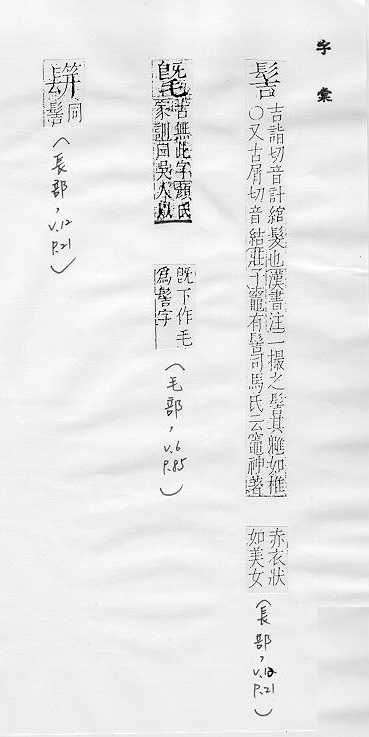 字彙
髻
吉詣切音計綰髮也漢書注一撮之髻其椎如椎
○又古屑切音結莊子竈有髻司馬氏云竈神著
赤衣狀
如美女
(長部, v.12 P.21)
苦無此字顏氏
家訓曰吳人㠯
旣下作毛
為髻字
(毛部, v.6 P.85)
同
髻
(長部, v.12 P.21)